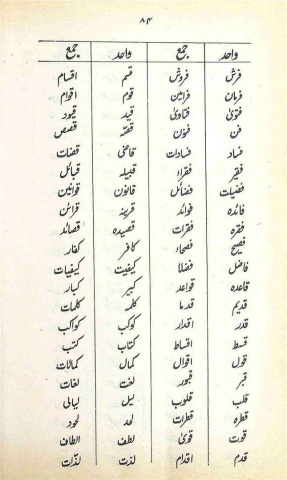 ۸۴
واحد جمع واحد جمع
فرش فروش قسم اقسام
فرمان فرامین قوم اقوام
فتویٰ فتاویٰ قید قیود
فن فنون قصّہ قصص
فساد فسادات قاضی قضات
فقیر فقراء قبیلہ قبائل
فضیلت فضائل قانون قوانین
فائدہ فوائد قرینہ قرائن
فقرہ فقرات قصیدہ قصائد
فصیح فصحاء کافر کفار
فاضل فضلا کیفیت کیفیات
قاعدہ قواعد کبیر کبار
قدیم قدما کلمہ کلمات
قدر اقدار کوکب کواکب
قسط اقساط کتاب کتب
قول اقوال کمال کمالات
قبر قبور لغت لغات
قلب قلوب لیل لیالی
قطرہ قطرات لحد لحود
قوت قویٰ لطف الطاف
قدم اقدام لذت لذّات